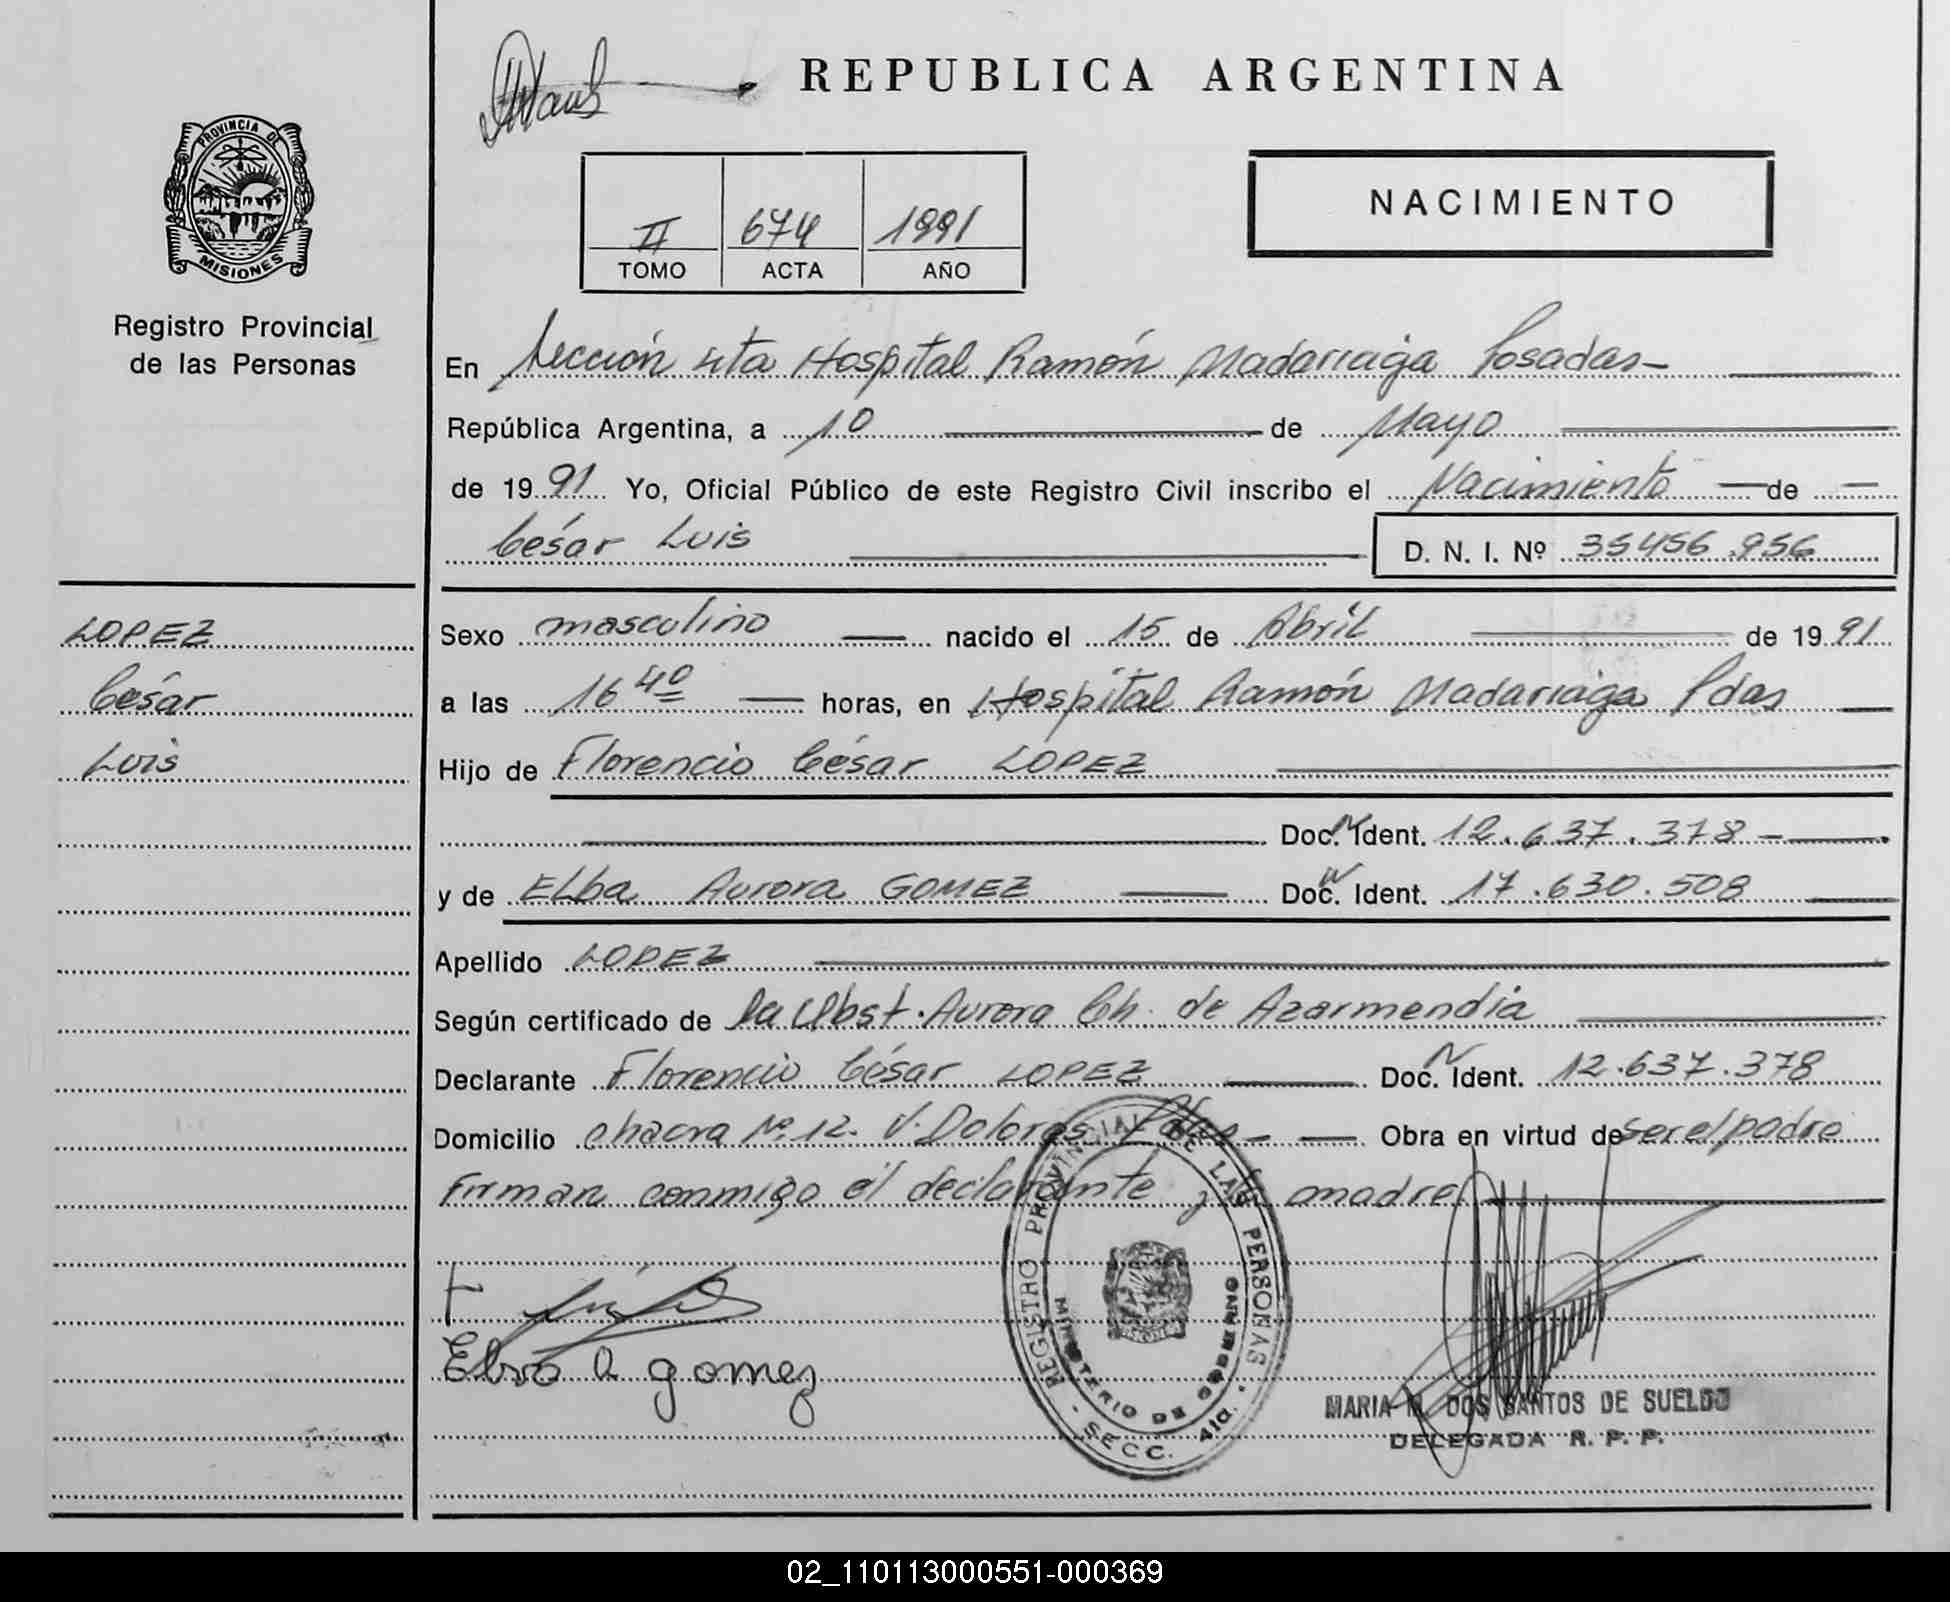 REPUBLICA ARGENTINA
PROVINCIA DE
MISIONES
Registro Provincial
de las Personas
II 674 1991
TOMO ACTA AÑO
NACIMIENTO
En Sección 4ta Hospital Ramón Madariaga Posadas-
República Argentina, a 10 de Mayo
de 1991 Yo, Oficial Público de este Registro Civil inscribo el Nacimiento de
César Luis D. N. I. Nº 35456.956
LOPEZ
César
Luis
Sexo masculino nacido el 15 de Abril de 1991
a las 16 40 horas, en Hospital Ramón Madariaga Pdas
Hijo de Florencio César LOPEZ
Doc. N Ident. 12.637.378-
y de ELba Aurora GOMEZ Doc. N Ident. 17.630.508
Apellido LOPEZ
Según certificado de la Obst. Aurora Ch. de Azarmendia
Declarante Florencio César LOPEZ Doc. N Ident. 12.637.378
Domicilio chacra Nº 12. V. Dolores Pdas- Obra en virtud de ser el padre
Firman conmigo el declarante y madre
Elva A gomez
REGISTRO PROVINCIAL DE LAS PERSONAS
MINISTERIO DE GOBIERNO
- SECC. 4ta. -
MARIA DOS SANTOS DE SUELDO
DELEGADA R. P. P.
02_110113000551-000369